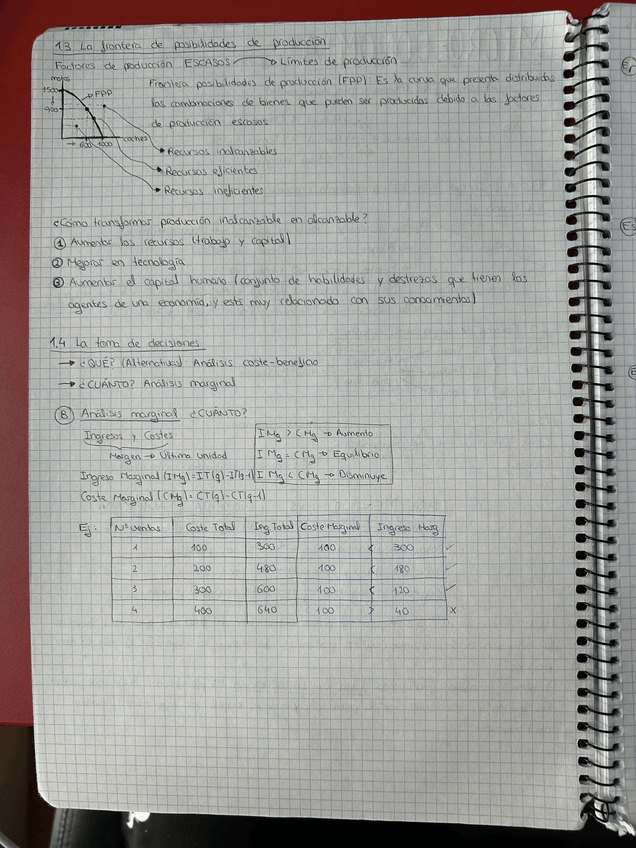 1.3 La frontera de posibilidades de producción
Factores de producción ESCASOS → Límites de producción
motos
1500
900
FPP
coches
→ 600 1000
Frontera posibilidades de producción (FPP): Es la curva que presenta distribuidas
las combinaciones de bienes que pueden ser producidas debido a las factores
de producción escasos.
→ Recursos inalcanzables
→ Recursos eficientes
→ Recursos ineficientes
¿Cómo transformar producción inalcanzable en alcanzable?
① Aumentar los recursos (trabajo y capital)
② Mejorar en tecnología
③ Aumentar el capital humano (conjunto de habilidades y destrezas que tienen los
agentes de una economía, y está muy relacionado con sus conocimientos)
1.4 La toma de decisiones
→ ¿QUÉ? (Alternativas) Análisis coste-beneficio
→ ¿CUÁNTO? Análisis marginal
Ⓑ Análisis marginal ¿CUÁNTO?
Ingresos y Costes
Margen → Última unidad
Ingreso Marginal (IMg)=IT(q)-IT(q-1)
Coste Marginal (CMg)= CT(q)-CT(q-1)
IMg > CMg → Aumento
IMg = CMg → Equilibrio
IMg < CMg → Disminuye
Ej:
Nº ventas Coste Total Ing Total Coste Marginal Ingreso Marg
1 100 300 100 < 300 ✓
2 200 480 100 < 180 ✓
3 300 600 100 < 120 ✓
4 400 640 100 > 40 x